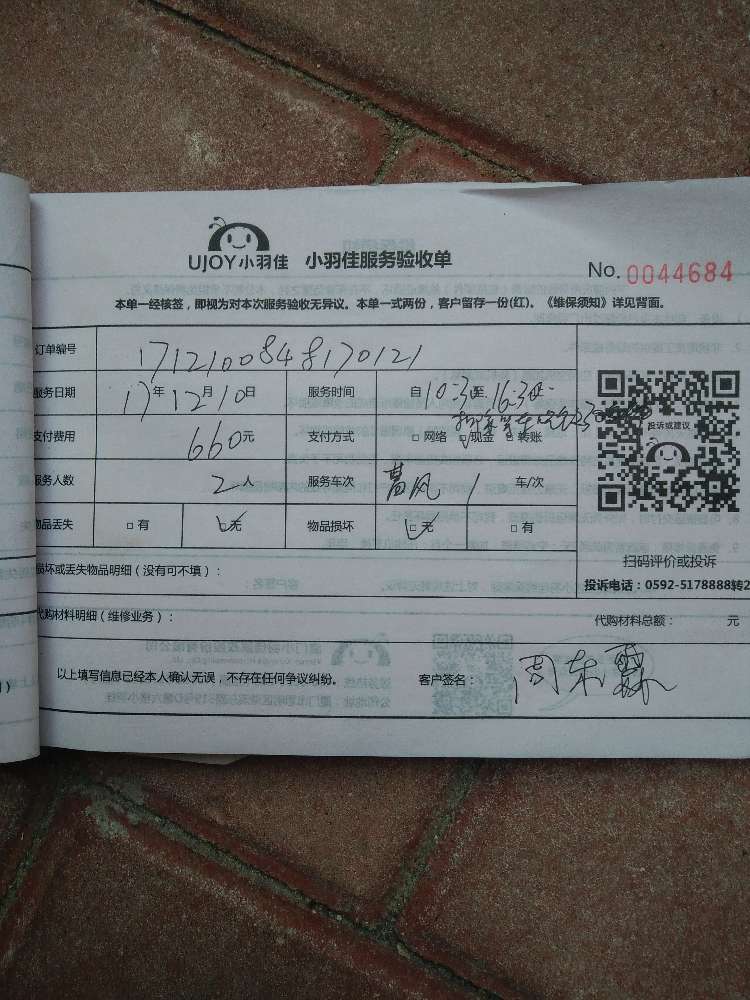 UJOY小羽佳 小羽佳服务验收单
No. 0044684
本单一经核签，即视为对本次服务验收无异议。本单一式两份，客户留存一份(红)。《维保须知》详见背面。
订单编号 1712100848170121
服务日期 17年12月10日 服务时间 自10:30至16:30
支付费用 660元 支付方式 □网络 □现金 □转账
投诉或建议
服务人数 2人 服务车次 1 车/次
物品丢失 □有 ☑无 物品损坏 ☑无 □有
扫码评价或投诉
损坏或丢失物品明细（没有可不填）：
投诉电话：0592-5178888转2
代购材料明细（维修业务）：
代购材料总额： 元
以上填写信息已经本人确认无误，不存在任何争议纠纷。 客户签名： 周东霖